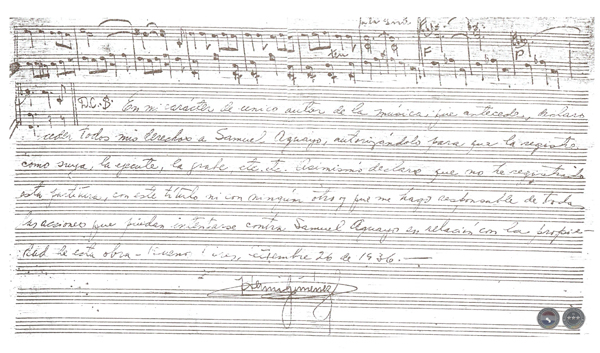 D.C. $ En mi carácter de unico autor de la música, que antecede, declaro
ceder todos mis derechos a Samuel Aguayo, autorizándolo para que la registre
como suya, la ejecute, la grabe etc. etc. Asimismo declaro que no he registrado
esta partitura, con este título ni con ningún otro y que me hago responsable de toda
las acciones que puedan intentarse contra Samuel Aguayo en relación con la propie-
dad de esta obra - Buenos Aires, 26 de 1936. —